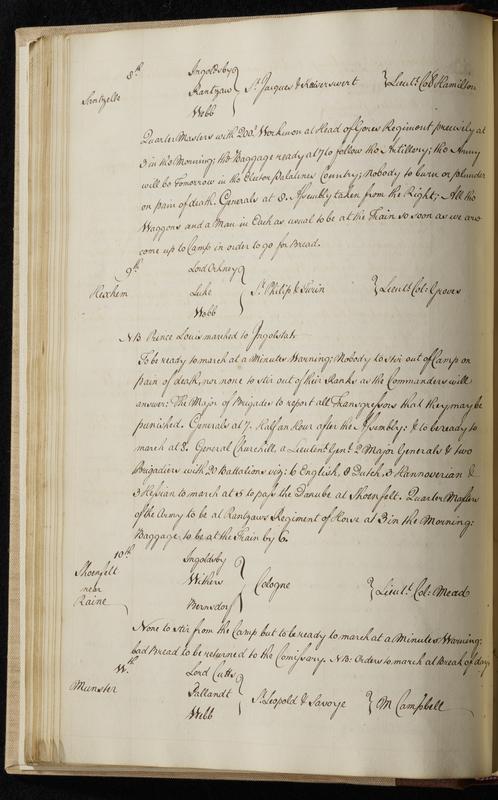 8th Ingoldsby
Rantzaw St Jacques & Keiserswert Lieut: Col Hamilton
Santzelle
Webb
Quarter Masters with 200 Workmen at Head of Gores Regiment precisely at
3 in the Morning; the Baggage ready at 7 to follow the Artillery; the Army
will be Tomorrow in the Elector Palatines Country; Nobody to burn or plunder
on pain of death. Generals at 8. Assembly taken from the Right; All the
Waggons and a Man in Each as usual to be at the Train so soon as we are
come up to Camp in order to go for Bread.
9th Lord Orkney
Hexhem Luke St Philip & Swin Lieut: Col: Groves
Webb
NB Prince Louis marched to Ingolstat.
To be ready to march at a Minutes Warning; Nobody to stir out of Camp on
pain of death, nor none to stir out of their Ranks as the Commanders will
answer: The Major of Brigades to report all Transgressors that they may be
punished. Generals at 7. Half an Hour after the Assembly: & to be ready to
march at 8. General Churchill, a Lieutent Genl. 2 Major Generals & two
Brigadiers with 20 Battalions viz: 6 English, 8 Dutch, 3 Hannoverian &
3 Hessian to march at 5 to pass the Danube at Shoenfelt. Quarter Masters
of the Army to be at Rantzaws Regiment of Horse at 3 in the Morning:
Baggage to be at the Train by 6.
10th Ingoldsby
Shoenfelt
near Withers Cologne Lieut: Col: Mead
Raine
Bernsdorf
None to stir from the Camp but to be ready to march at a Minutes Warning;
bad Bread to be returned to the Comissary. NB: Orders to march at Break of day.
11th Lord Cutts
Munster Pallandt St Leopold & Savoye M Campbell
Webb